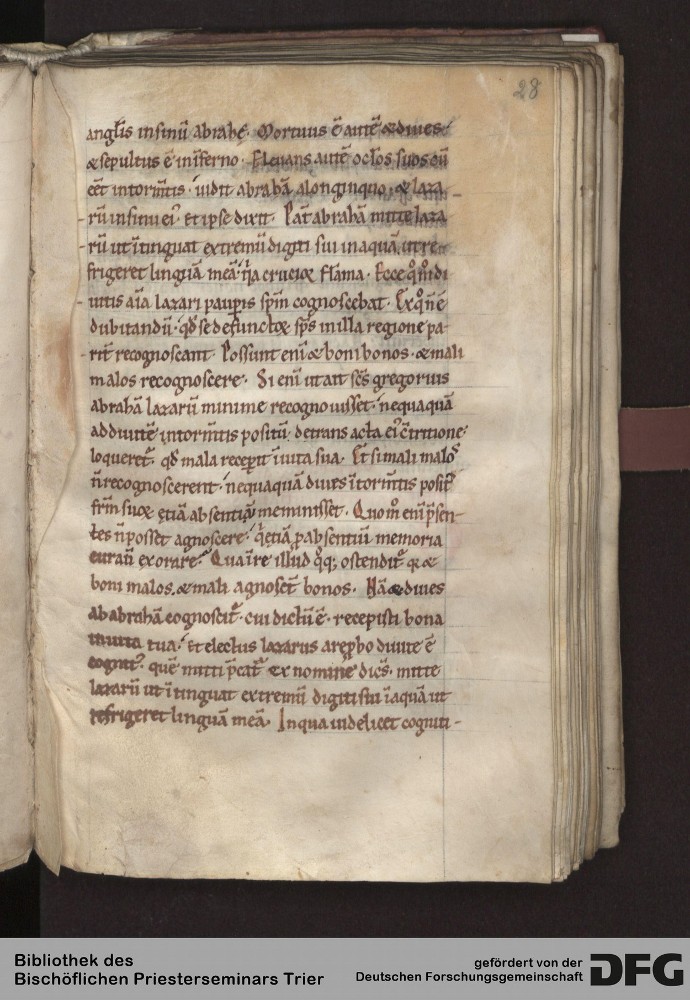 28
angl̄is insinū abrahę. Mortuus ē autē & diues
& sepultus ē in inferno. Eleuans autē oc̄los suos cū
eēt in torm̄tis. uidit abrahā a longinquo. & laza
rū in sinu ei'. Et ipse dixit. Pat̄ abrahā mitte laza
rū ut ītinguat extremū digiti sui in aquā. ut re
frigeret linguā meā. q̇a crucior flāma. Ecce quom̊di
uitis aīa lazari paup̱is sp̄m cognoscebat. Ex q̊ ń ē
dubitandū. qđ se defunctoꝝ sp̄s in illa regione pa-
rit̄ recognoscant. Possunt enī & boni bonos. & mali
malos recognoscere. Si enī ut ait sc̄s gregorius
abrahā lazarū minime recognouisset. nequaquā
ad diuitē in torm̄tis positū. de transacta ei' c̄tritione
loqueret̄. qđ mala recep̱it ī uita sua. Et si mali malos
ń recognoscerent. nequaquā diues ī torm̄tis posit'
fr̄m suoꝝ ęciā absentiū meminisset. Quom̊ enī p̄sen-
tes ń posset agnoscere. q̇ ęciā ꝓ absentiū memoria
curauit exorare. Qua ī re illud q̊q; ostendit̄ qꝛ &
boni malos. & mali agnoscet̄ bonos. Nā & diues
ab abrahā cognoscit̄. cui dictū ē. recepisti bona
in uita tua. Et electus lazarus a rep̱bo diuite ē
cognit'. quē mitti p̄cat̄ ex nomine dicēs. mitte
lazarū ut ītinguat extremū digiti sui ī aquā ut
refrigeret linguā meā. In qua uidelicet cogniti-
Bibliothek des
Bischöflichen Priesterseminars Trier
gefördert von der
Deutschen Forschungsgemeinschaft
DFG